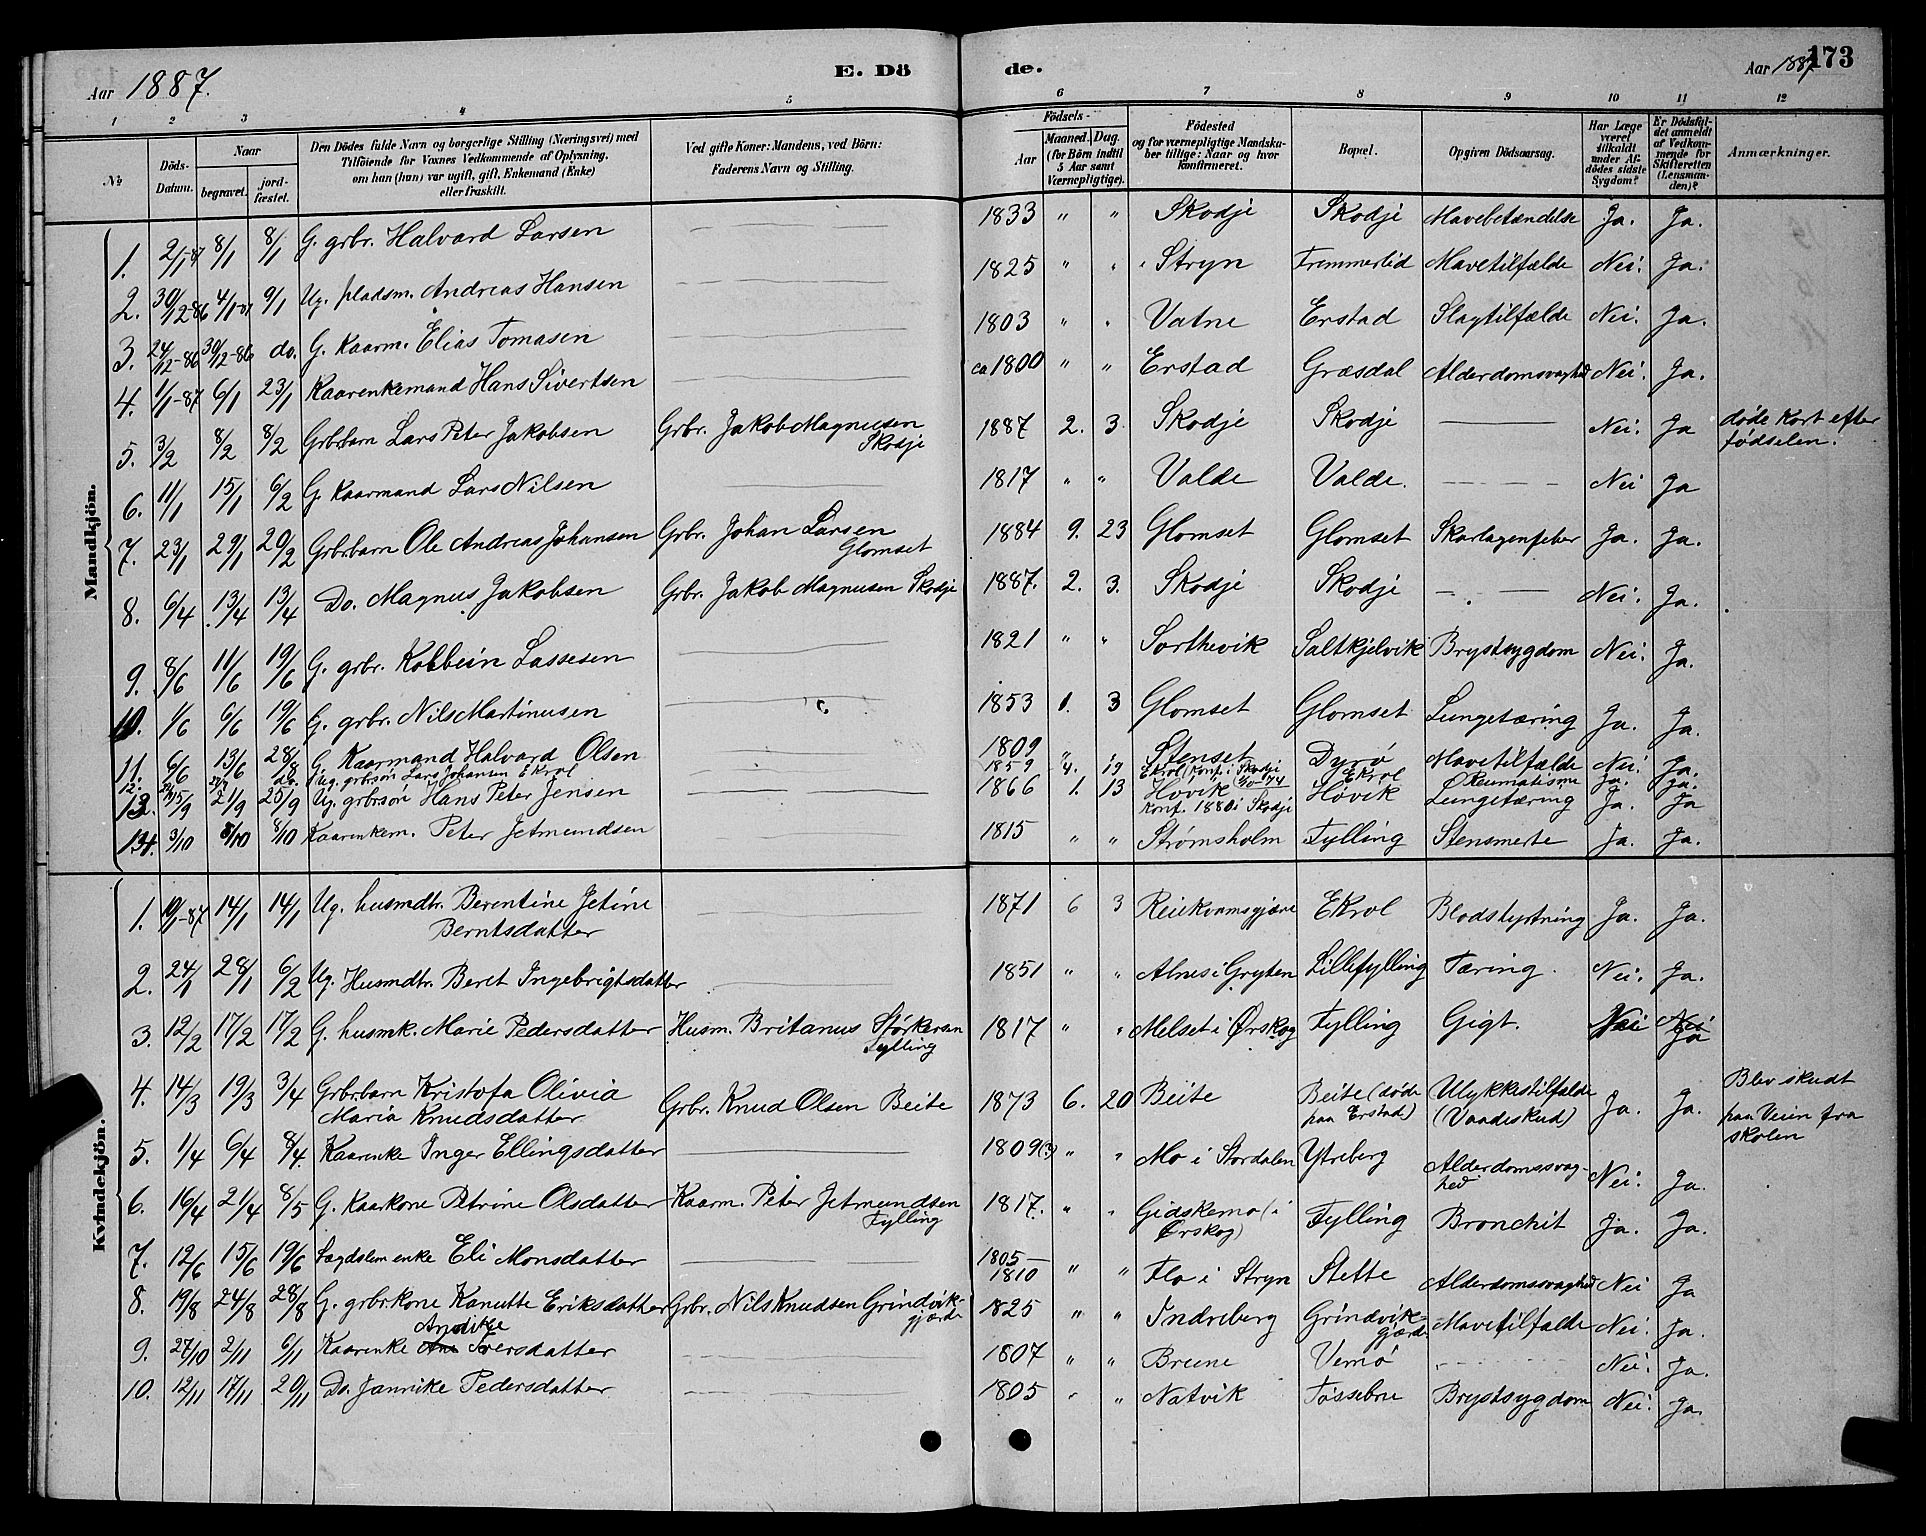 Aar 1887. E. Dö de. Aar 1887 173
1 2 3 4 5 6 7 8 9 10 11 12
№ Döds-Datum. Naar begravet. jordfæstet. Den Dödes fulde Navn og borgerlige Stilling (Næringsvei) med Tilföiende for Voxnes Vedkommende af Oplysning, om han (hun) var ugift, gift, Enkemand (Enke) eller fraskilt. Ved gifte Koner: Mandens, ved Börn: Faderens Navn og Stilling. Födsels- Aar Maaned. Dag. (for Börn indtil 5 Aar samt Værnepligtige). Födested og for værnepligtige Mandskaber tillige: Naar og hvor konfirmeret. Bopæl. Opgiven Dödsaarsag. Har Læge været tilkaldt under Afdödes sidste Sygdom? Er Dödsfaldet anmeldt af Vedkommende for Skifteretten (Lensmanden)? Anmærkninger.
Mandkjön.
1. 2/1-87 8/1 8/1 G. grbr. Halvard Larsen 1833 " " Skodje Skodje Mavebetændelse Ja. Ja.
2. 30/12-86 4/1-87 9/1 Ug. pladsm. Andreas Hansen 1825 " " Stryn Fremmerlid Mavetilfælde Nei. Ja.
3. 24/12-86 30/12-86 do. G. Kaarm. Elias Tomasen 1803 " " Vatne Erstad Slagtilfælde Nei. Ja.
4. 1/1-87 6/1 23/1 Kaarenkemand Hans Sivertsen ca 1800 " " Erstad Græsdal Alderdomsvaghed Nei. Ja.
5. 3/2 8/2 8/2 Grbrbarn Lars Peter Jakobsen Grbr. Jakob Magnusen Skodje 1887 2. 3. Skodje Skodje — Nei. Ja døde kort efter fødselen.
6. 11/1 15/1 6/2 G. Kaarmand Lars Nilsen 1817 " " Valde Valde. — Nei Ja
7. 23/1 29/1 20/2 Grbrbarn Ole Andreas Johansen Grbr. Johan Larsen Glomset 1884 9. 23 Glomset Glomset Skarlagenfeber Ja. Ja.
8. 6/4 13/4 13/4 Do. Magnus Jakobsen Grbr. Jakob Magnusen Skodje 1887. 2. 3. Skodje Skodje — Nei. Ja.
9. 8/6 11/6 19/6 G. grbr. Kolbein Lassesen 1821 " " Sorthevik Saltkjelvik Brystsygdom Nei. Ja.
10. 1/6 6/6 19/6 G. grbr. Nils Martinusen 1853 1. 3 Glomset Glomset Lungetæring Ja. Ja.
11. 6/6 13/6 28/8 G. Kaarmand Halvard Olsen 1809 " " Stenset Dyrø Mavetilfælde Nei. Ja.
12. do. Ug. grbrsøn Lars Johansen Ekrol 1859 4. 19 Ekrol (konf. i Skodje Ekrol Reumatisme Ja. Ja.
13. 15/9 21/9 25/9 Ug. grbrsøn Hans Peter Jensen 1866 1. 13 Høvik konf. 1880 i Skodje Høvik Lungetæring Ja. Ja
14. 3/10 8/10 8/10 Kaarenkem. Peter Jetmundsen 1815 " " Strømsholm Fylling Stensmerte Ja. Ja.
Kvindekjön.
1. 10/1-87 14/1 14/1 Ug. husmdtr. Berentine Jetine Berntsdatter 1871 6 3 Reiekvamsgjære Ekrol Blodstyrtning Ja. Ja.
2. 24/1 28/1 6/2 Ug. Husmdtr. Beret Ingebrigtsdatter 1851 " " Alnes i Gryten Lillefylling Tæring. Nei. Ja.
3. 12/2 17/2 17/2 G. husmk. Marie Pedersdatter Husm. Britanus Størkersen Fylling 1817 " " Melset i Ørskog Fylling Gigt. Nei Nei Ja
4. 14/3 19/3 3/4 Grbrbarn Kristofa Olivia Maria Knudsdatter Grbr. Knud Olsen Beite 1873 6. 20 Beite Beite (døde paa Erstad) Ulykkestilfælde (Vaadeskud) Ja. Ja. Blev skudt paa Veien fra skolen
5. 1/4 6/4 8/4. Kaarenke Inger Ellingsdatter 1809(?) " " Mo i Stordalen Ytreberg Alderdomssvaghed Nei. Ja.
6. 16/4 21/4 8/5 G. Kaarkone Petrine Olsdatter Kaarm. Peter Jetmundsen Fylling 1817. " " Gidskemo (i Ørskog) Fylling Bronchit Ja. Ja.
7. 12/6 15/6 19/6 Lægdslem enke Eli Monsdatter 1805–1810 " " Flo i Stryn Stette Alderdomssvaghed Nei Ja
8. 19/8 24/8 28/8 G. grbrkone Kanutte Eriksdatter Grbr. Nils Knudsen Grindvikgjærde 1825 " " Indreberg Grindvikgjærde Mavetilfælde Nei. Ja.
9. 27/10 2/11 6/11 Kaarenke Ane Annike Iversdatter 1807 " " Brune Vemø — Nei. Ja.
10. 12/11 17/11 20/11 Do. Jannike Pedersdatter 1805 " " Natvik Fossebne Brystsygdom Nei. Ja.